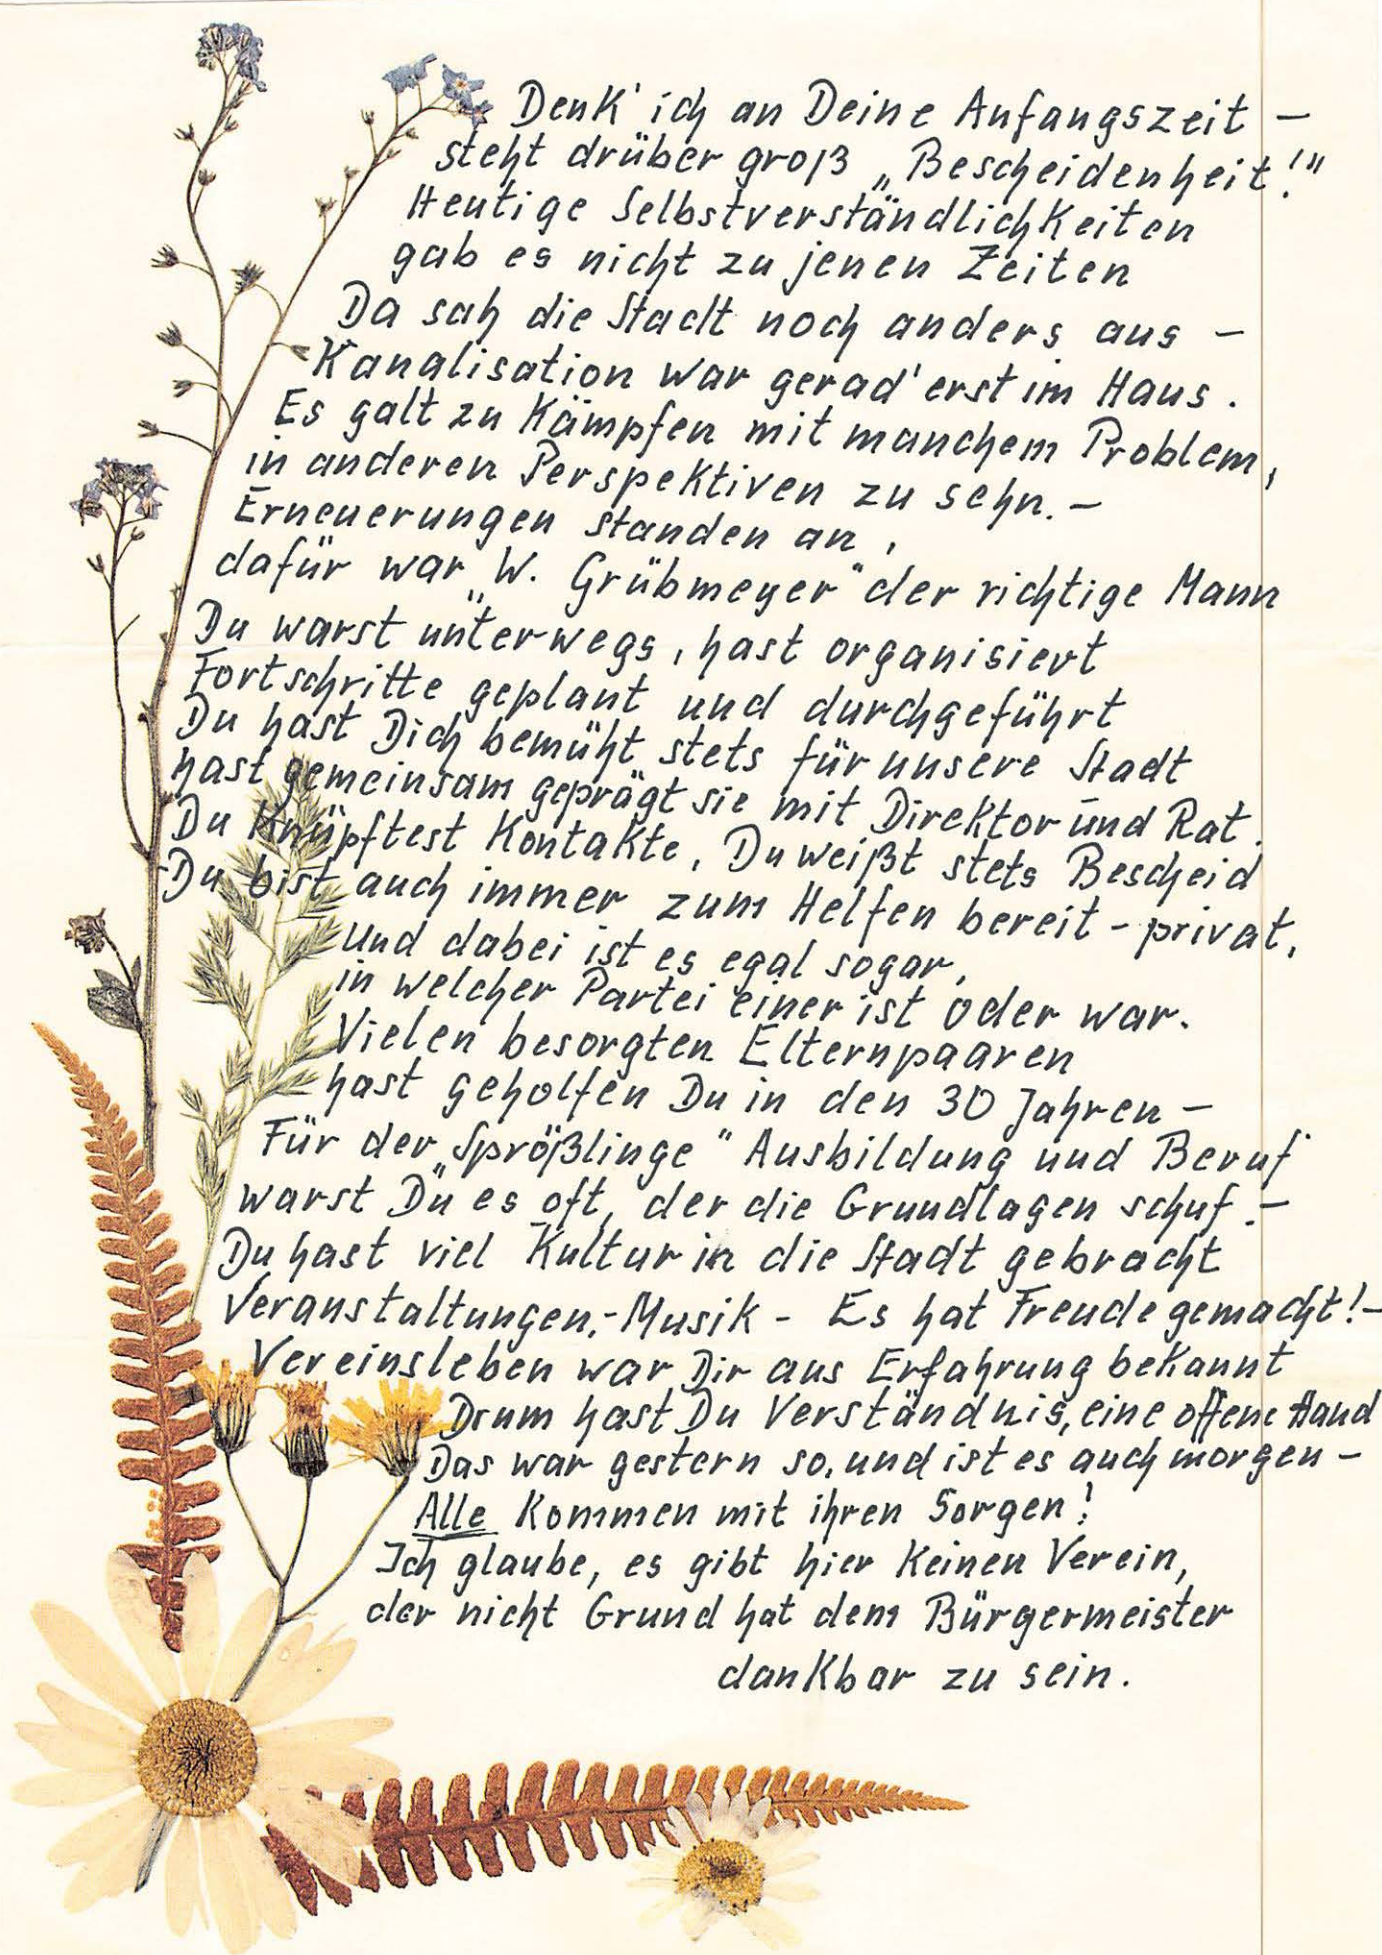 Denk' ich an Deine Anfangszeit –
steht drüber groß „Bescheidenheit!"
Heutige Selbstverständlichkeiten
gab es nicht zu jenen Zeiten
Da sah die Stadt noch anders aus –
Kanalisation war gerad' erst im Haus.
Es galt zu kämpfen mit manchem Problem,
in anderen Perspektiven zu sehn. –
Erneuerungen standen an,
dafür war „W. Grübmeyer" der richtige Mann
Du warst unterwegs, hast organisiert
Fortschritte geplant und durchgeführt
Du hast Dich bemüht stets für unsere Stadt
hast gemeinsam geprägt sie mit Direktor und Rat.
Du knüpftest Kontakte, Du weißt stets Bescheid
Du bist auch immer zum Helfen bereit – privat,
Und dabei ist es egal sogar,
in welcher Partei einer ist oder war.
Vielen besorgten Elternpaaren
hast geholfen Du in den 30 Jahren –
Für der „Sprößlinge" Ausbildung und Beruf
warst Du es oft, der die Grundlagen schuf. –
Du hast viel Kultur in die Stadt gebracht
Veranstaltungen, – Musik – Es hat Freude gemacht! –
Vereinsleben war Dir aus Erfahrung bekannt
Drum hast Du Verständnis, eine offene Hand
Das war gestern so, und ist es auch morgen –
Alle kommen mit ihren Sorgen!
Ich glaube, es gibt hier keinen Verein,
der nicht Grund hat dem Bürgermeister
dankbar zu sein.